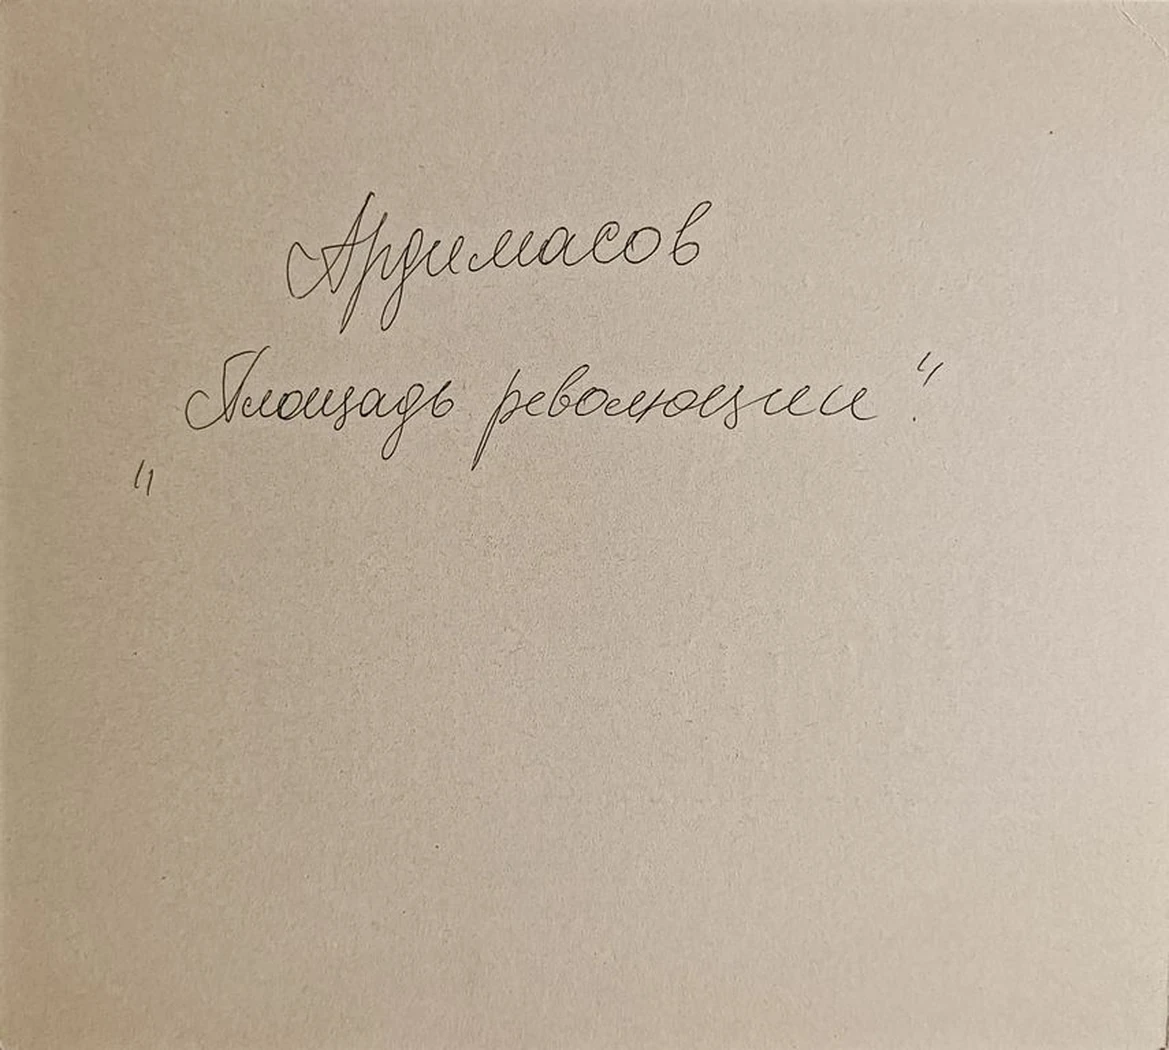 Ардимасов
"Площадь революции".